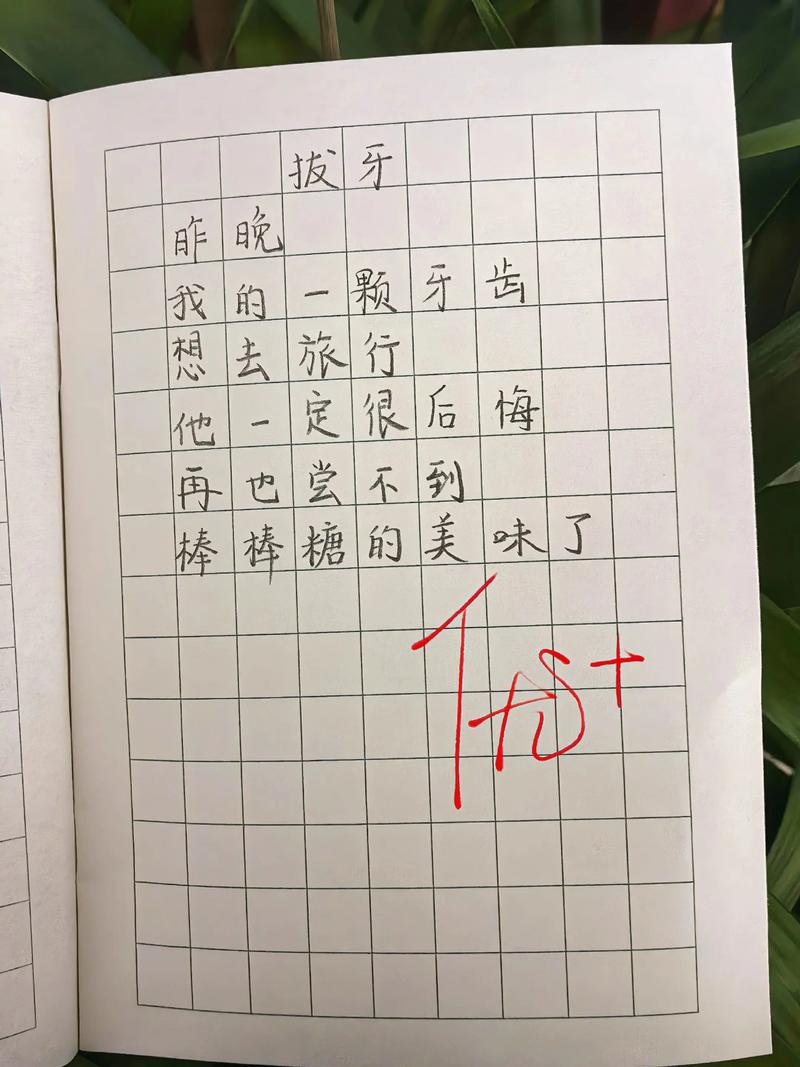 拔牙
昨晚
我的一颗牙齿
想去旅行
他一定很后悔
再也尝不到
棒棒糖的美味了
优+